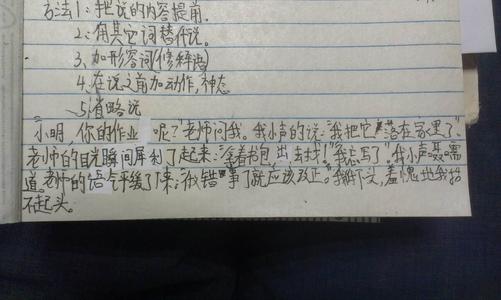 方法1:把说的内容提前.
2.用其它词替代说。
3、加形容词(修辞语)
4.在说之前加动作,神态
5.省略说
"小明,你的作业呢?"老师问我。我小声的说:"我把它落在家里了"。
老师的目光瞬间犀利了起来:"拿着书包,出去找!""我忘写了"。我小声嗫嚅
道。老师的语气平缓了下来:"做错事了就应该改正。"我低下头,羞愧地我抬
不起头。